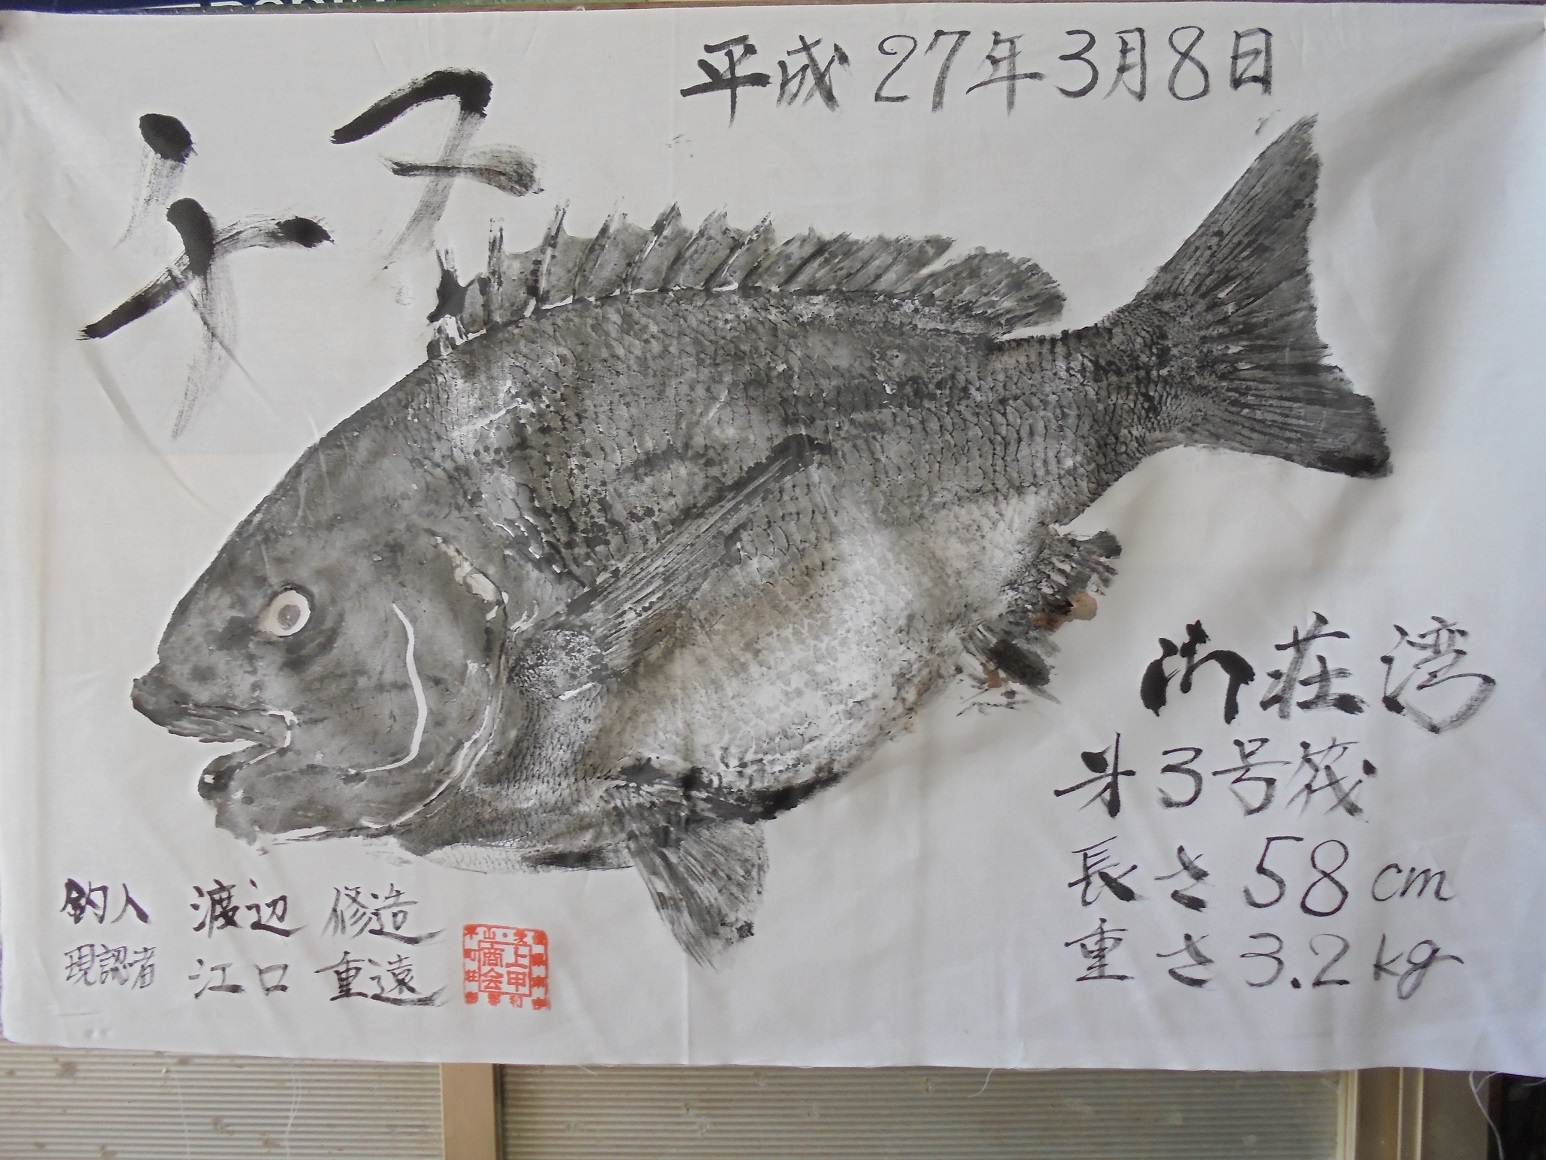 平成27年3月8日
チヌ
御荘湾
才3号筏
長さ58cm
重さ3.2kg
釣人 渡辺 修造
現認者 江口 重遠
上甲
商会